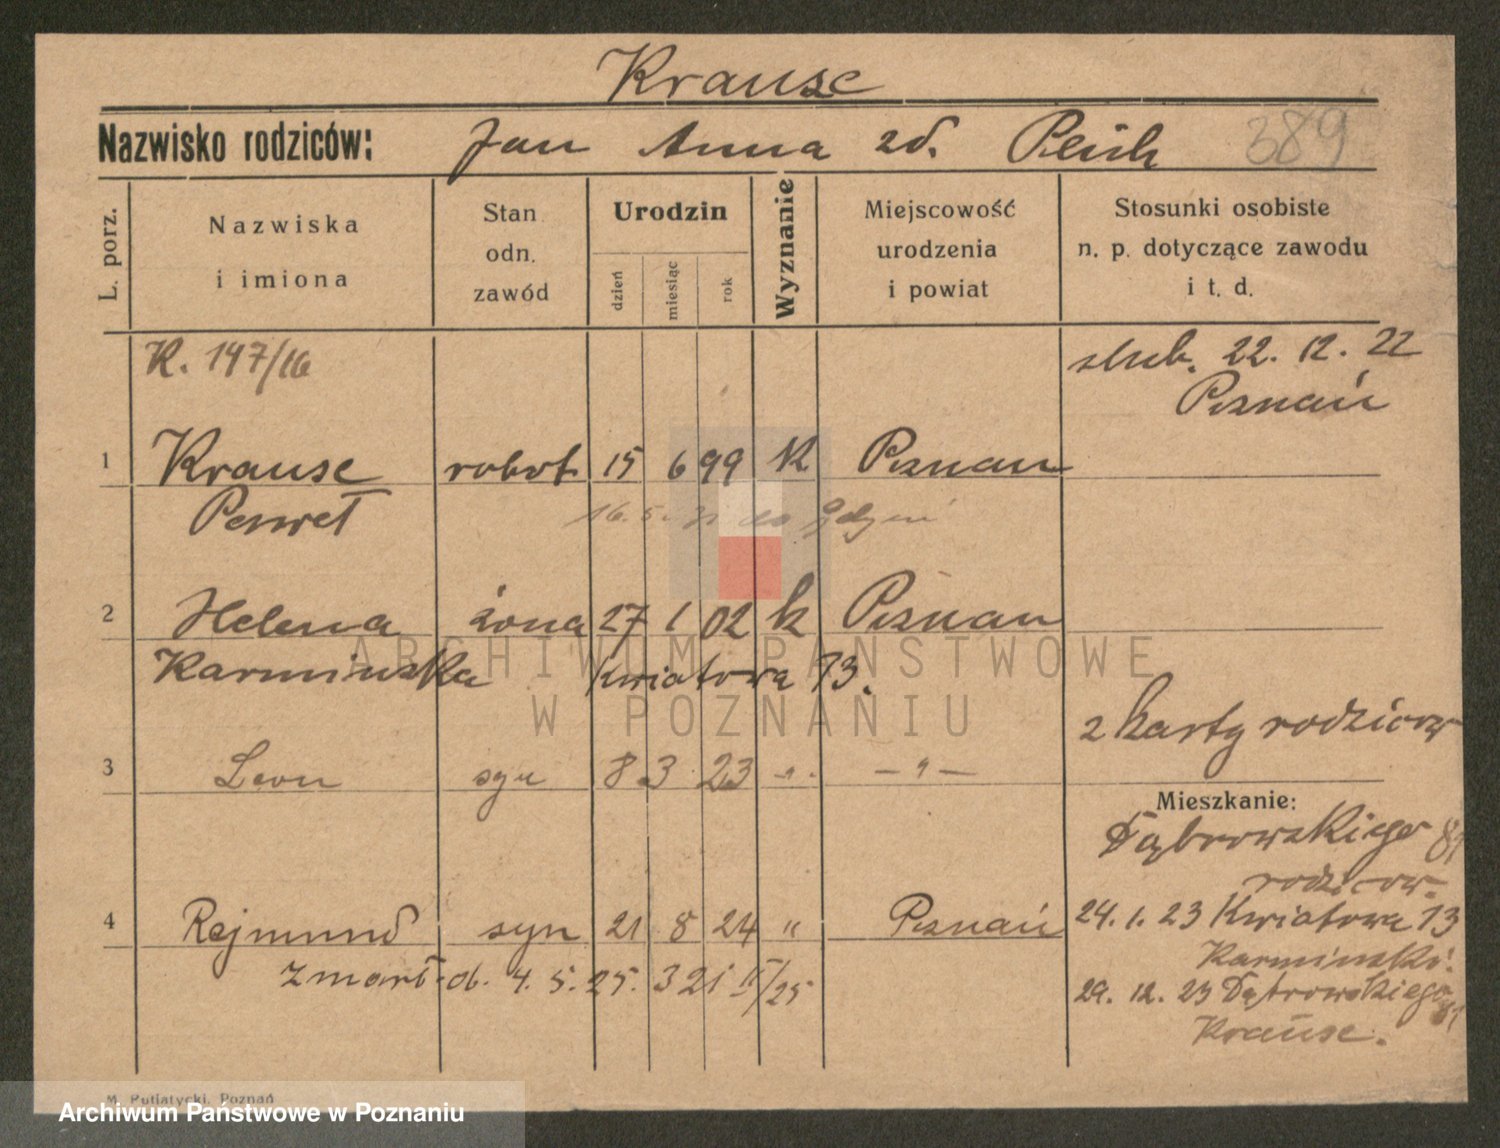 Krause
Nazwisko rodziców: Jan Anna zd. 389
L. porz.
Nazwiska i imiona
Stan odn. zawód
Urodzin
dzień miesiąc rok
Wyznanie
Miejscowość urodzenia i powiat
Stosunki osobiste n. p. dotyczące zawodu i t. d.
K. 147/16
ślub. 22. 12. 22
Poznań
1 Krause robot. 15 6 99 K Poznań
Paweł 16. 5. do Gdyni
2 Helena żona 27 1 02 k Poznań
Karminska Kwiatowa 13.
z karty rodziców
3 Leon syn 8 3 23 -"- -"-
Mieszkanie:
Dąbrowskiego 81
rodziców.
4 Rejmund syn 21 8 24 " Poznań
24. 1. 23 Kwiatowa 13
Karminski.
zmarł. ob. 4. 5. 25. 321 II/25
29. 12. 23 Dąbrowskiego 81
Krause.
M. Putiatycki, Poznań
ARCHIWUM PAŃSTWOWE
W POZNANIU
Archiwum Państwowe w Poznaniu